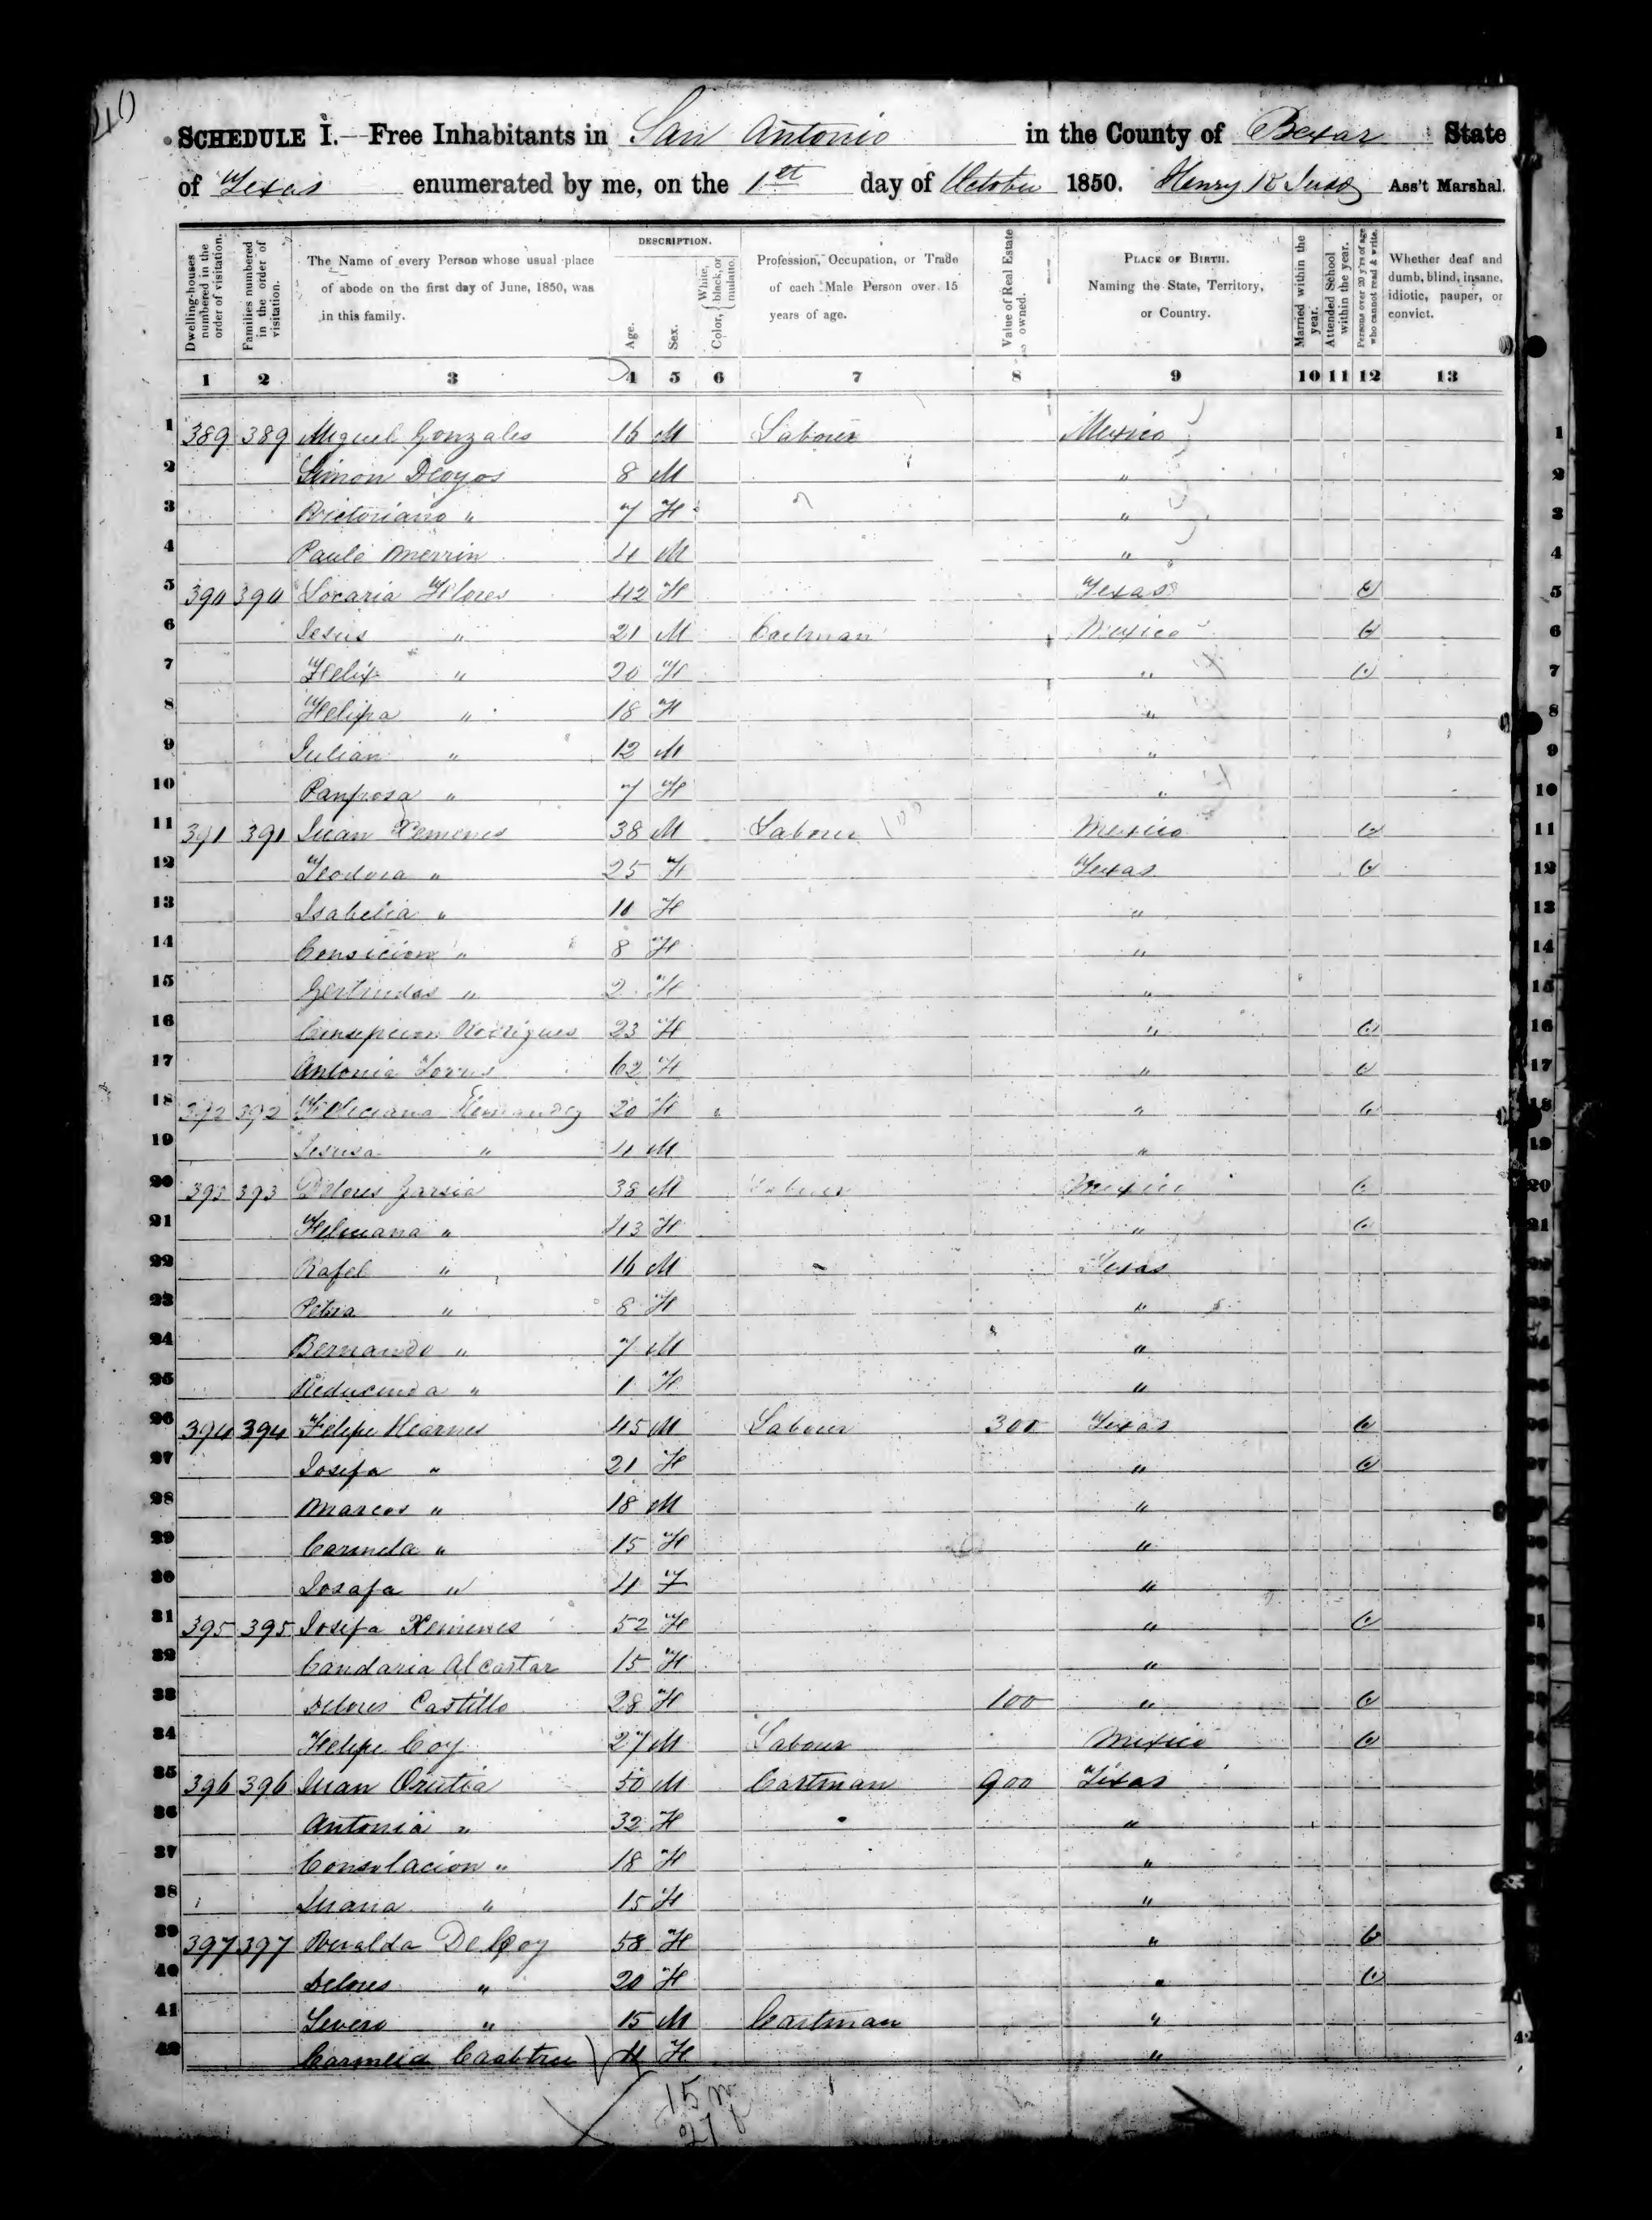 40
SCHEDULE I.—Free Inhabitants in San Antonio in the County of Bexar State
of Texas enumerated by me, on the 1st day of October 1850. Henry Ass't Marshal.
DESCRIPTION.
Dwelling-houses numbered in the order of visitation.
Families numbered in the order of visitation.
The Name of every Person whose usual place of abode on the first day of June, 1850, was in this family.
Age.
Sex.
Color, { White, black, or mulatto.
Profession, Occupation, or Trade of each Male Person over 15 years of age.
Value of Real Estate owned.
PLACE OF BIRTH. Naming the State, Territory, or Country.
Married within the year.
Attended School within the year.
Persons over 20 y'rs of age who cannot read & write.
Whether deaf and dumb, blind, insane, idiotic, pauper, or convict.
1 2 3 4 5 6 7 8 9 10 11 12 13
1 389 389 Miguel Gonzales 16 M Labourer Mexico 1
2 Simon Deoyos 8 M " 2
3 Victoriano " 7 F " 3
4 Paulo Merrin 4 M " 4
5 390 390 Flores 42 F Texas 5
6 Jesus " 21 M Cartman Mexico 6
7 Felix " 20 F " 7
8 Felipa " 18 F " 8
9 Julian " 12 M " 9
10 Panposa " 7 F " 10
11 391 391 Juan Xemenes 38 M Labour 100 Mexico 11
12 Teodora " 25 F Texas 12
13 Isabelia " 10 F " 13
14 Consicion " 8 F " 14
15 Gertrudas " 2 F " 15
16 Consepcion Rodrigues 23 F " 16
17 Antonia Torres 62 F " 17
18 392 392 Feliciana Hernandez 20 F " 18
19 Jesusa " 4 M " 19
20 393 393 Delores Garsia 38 M Labour Mexico 20
21 " 43 F " 21
22 Rafel " 16 M Texas
23 Petra " 8 F "
24 Bernando " 7 M "
25 " 1 F "
26 394 394 Felipe 45 M Labour 300 Texas
27 Josefa " 21 F "
28 Marcos " 18 M "
29 Carmela " 15 F "
30 Josafa " 4 F "
31 395 395 Josefa Xemines 52 F "
32 Candaria Alcastar 15 F "
33 Delores Castillo 28 F 100 "
34 Felipe Coy 27 M Labour Mexico
35 396 396 Juan Orutia 50 M Cartman 900 Texas
36 Antonia " 32 F "
37 Consolacion " 18 F "
38 Juana " 15 F "
39 397 397 De Coy 58 F "
40 Delores " 20 F "
41 Severo " 15 M Cartman "
42 Carmela Crabtree F " 42
15 m
27 f